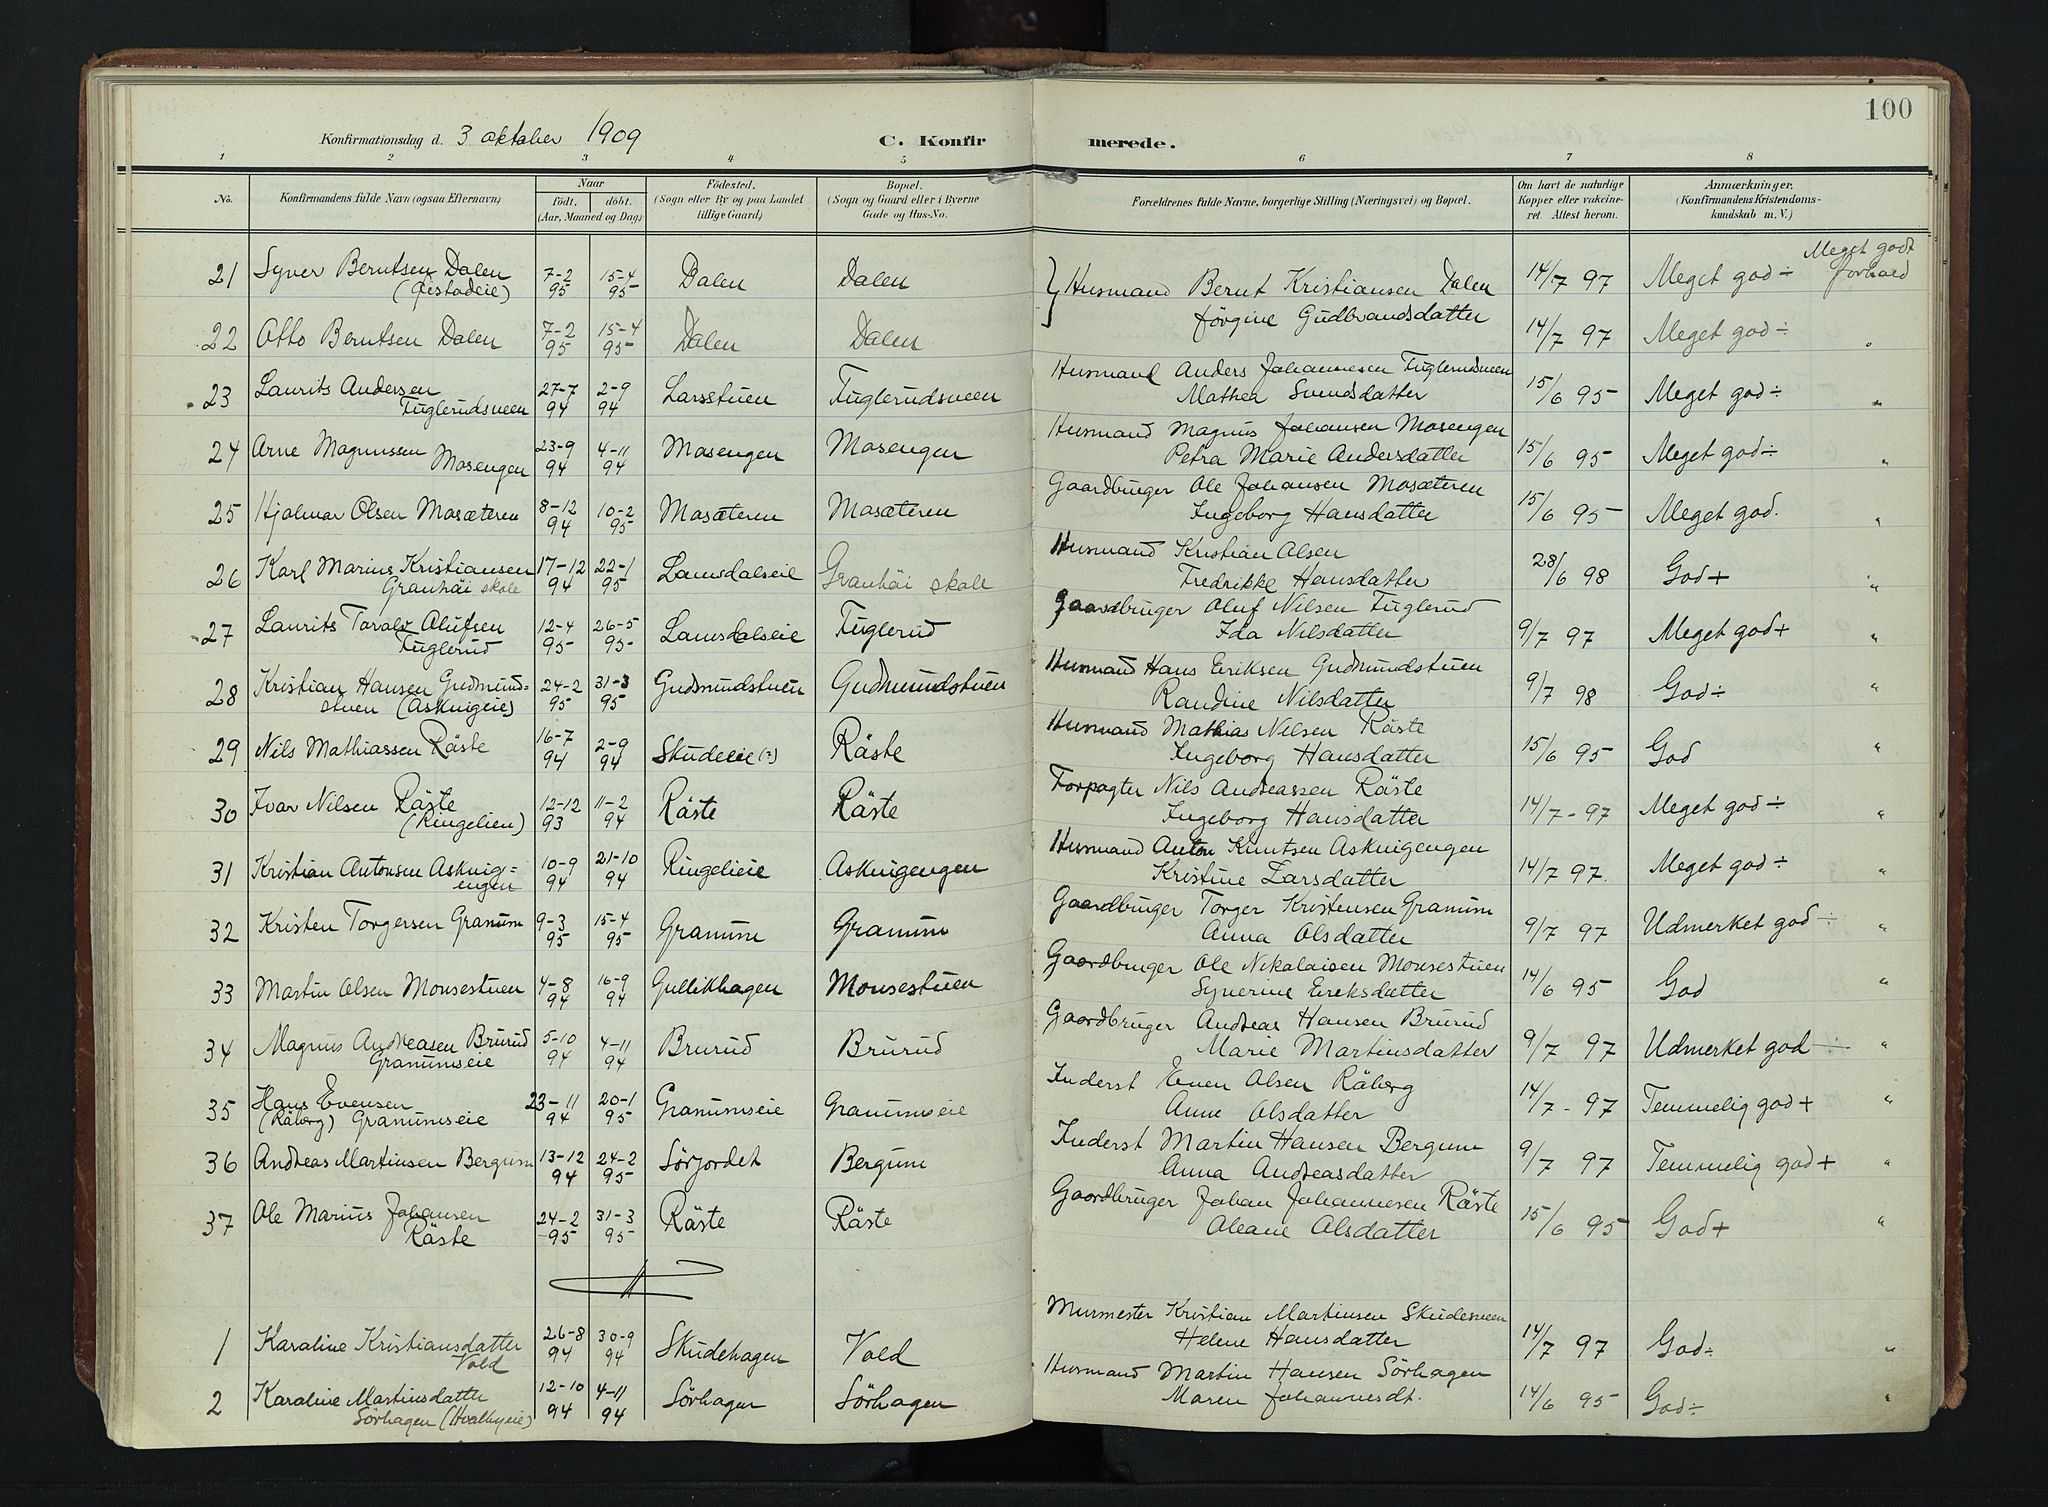 100
Konfirmationsdag d. 3 oktober 1909
C. Konfirmerede.
1 2 3 4 5 6 7 8
No. Konfirmandens fulde Navn (ogsaa Efternavn). Naar født. døbt. (Aar, Maaned og Dag) Fødested. (Sogn eller By og paa Landet tillige Gaard) Bopæl. (Sogn og Gaard eller i Byerne Gade og Hus-No. Forældrenes fulde Navne, borgerlige Stilling (Næringsvei) og Bopæl. Om havt de naturlige Kopper eller vakcineret. Attest herom. Anmærkninger. (Konfirmandens Kristendomskundskab m. V.)
21 Syver Berntsen Dalen 7-2 95 15-4 95 Dalen Dalen } Husmand Bernt Kristiansen Dalen 14/7 97 Meget god ÷ Meget godt forhold
Jörgine Gudbrandsdatter
22 Otto Berntsen Dalen 7-2 95 15-4 95 Dalen Dalen 14/7 97 Meget god ÷ "
23 Laurits Andersen Fuglerudsveen 27-7 94 2-9 94 Larsstuen Fuglerudsveen Husmand Anders Johannesen Fuglerudsveen 15/6 95 Meget god ÷ "
Mathea Svendsdatter
24 Arne Magnussen Mosengen 23-9 94 4-11 94 Mosengen Mosengen Husmand Magnus Johansen Mosengen 15/6 95 Meget god ÷ "
Petra Marie Andersdatter
25 Hjalmar Olsen Mosæteren 8-12 94 10-2 95 Mosæteren Mosæteren Gaardbruger Ole Johansen Mosæteren 15/6 95 Meget god. "
Ingeborg Hansdatter
26 Karl Marius Kristiansen Granhäi skole 17-12 94 22-1 95 Lansdalseie Granhäi skole Husmand Kristian Olsen 28/6 98 God + "
Fredrikke Hansdatter
27 Laurits Toralv Olufsen Fuglerud 12-4 95 26-5 95 Lansdalseie Fuglerud Gaardbruger Oluf Nilsen Fuglerud 9/7 97 Meget god + "
Ida Nilsdatter
28 Kristian Hansen Gudmundstuen (Askvigeie) 24-2 95 31-3 95 Gudmundstuen Gudmundstuen Husmand Hans Eriksen Gudmundstuen 9/7 98 God ÷ "
Randine Nilsdatter
29 Nils Mathiassen Räste 16-7 94 2-9 94 Skudeeie (?) Räste Husmand Mathias Nilsen Räste 15/6 95 God "
Ingeborg Hansdatter
30 Ivar Nilsen Räste (Ringelien) 12-12 93 11-2 94 Räste Räste Forpagter Nils Andreassen Räste 14/7 - 97 Meget god ÷ "
Ingeborg Hansdatter
31 Kristian Antonsen Askvigengen 10-9 94 21-10 94 Ringelieie Askvigengen Husmand Anton Knutsen Askvigengen 14/7 97. Meget god ÷ "
Kristine Larsdatter
32 Kristen Torgersen Granum 9-3 95 15-4 95 Granum Granum Gaardbruger Torger Kristensen Granum 9/7 97 Udmerket god ÷ "
Anna Olsdatter
33 Martin Olsen Monsestuen 4-8 94 16-9 94 Gullikhagen Monsestuen Gaardbruger Ole Nikolaisen Monsestuen 14/6 95 God "
Synerine Ereksdatter
34 Magnus Andreasen Brurud Granumseie 5-10 94 4-11 94 Brurud Brurud Gaardbruger Andreas Hansen Brurud 9/7 97 Udmerket god ÷ "
Marie Martinsdatter
35 Hans Evensen (Råberg) Granumseie 23-11 94 20-1 95 Granumseie Granumseie Inderst Even Olsen Råberg 14/7 - 97 Temmelig god + "
Anne Olsdatter
36 Andreas Martinsen Bergum 13-12 94 24-2 95 Sörjordet Bergum Inderst Martin Hansen Bergum 9/7 97 Temmelig god + "
Anna Andreasdatter
37 Ole Marius Johansen Räste 24-2 95 31-3 95 Räste Räste Gaardbruger Johan Johannesen Räste 15/6 95 God + "
Oleane Olsdatter
1 Karoline Kristiansdatter Vold 26-8 94 30-9 94 Skudehagen Vold Murmester Kristian Martinsen Skudesveen 14/7 97 God ÷ "
Helene Hansdatter
2 Karoline Martinsdatter Sörhagen (Hvalbyeie) 12-10 94 4-11 94 Sörhagen Sörhagen Husmand Martin Hansen Sörhagen 14/6 95 God ÷ "
Maren Johannesdt.